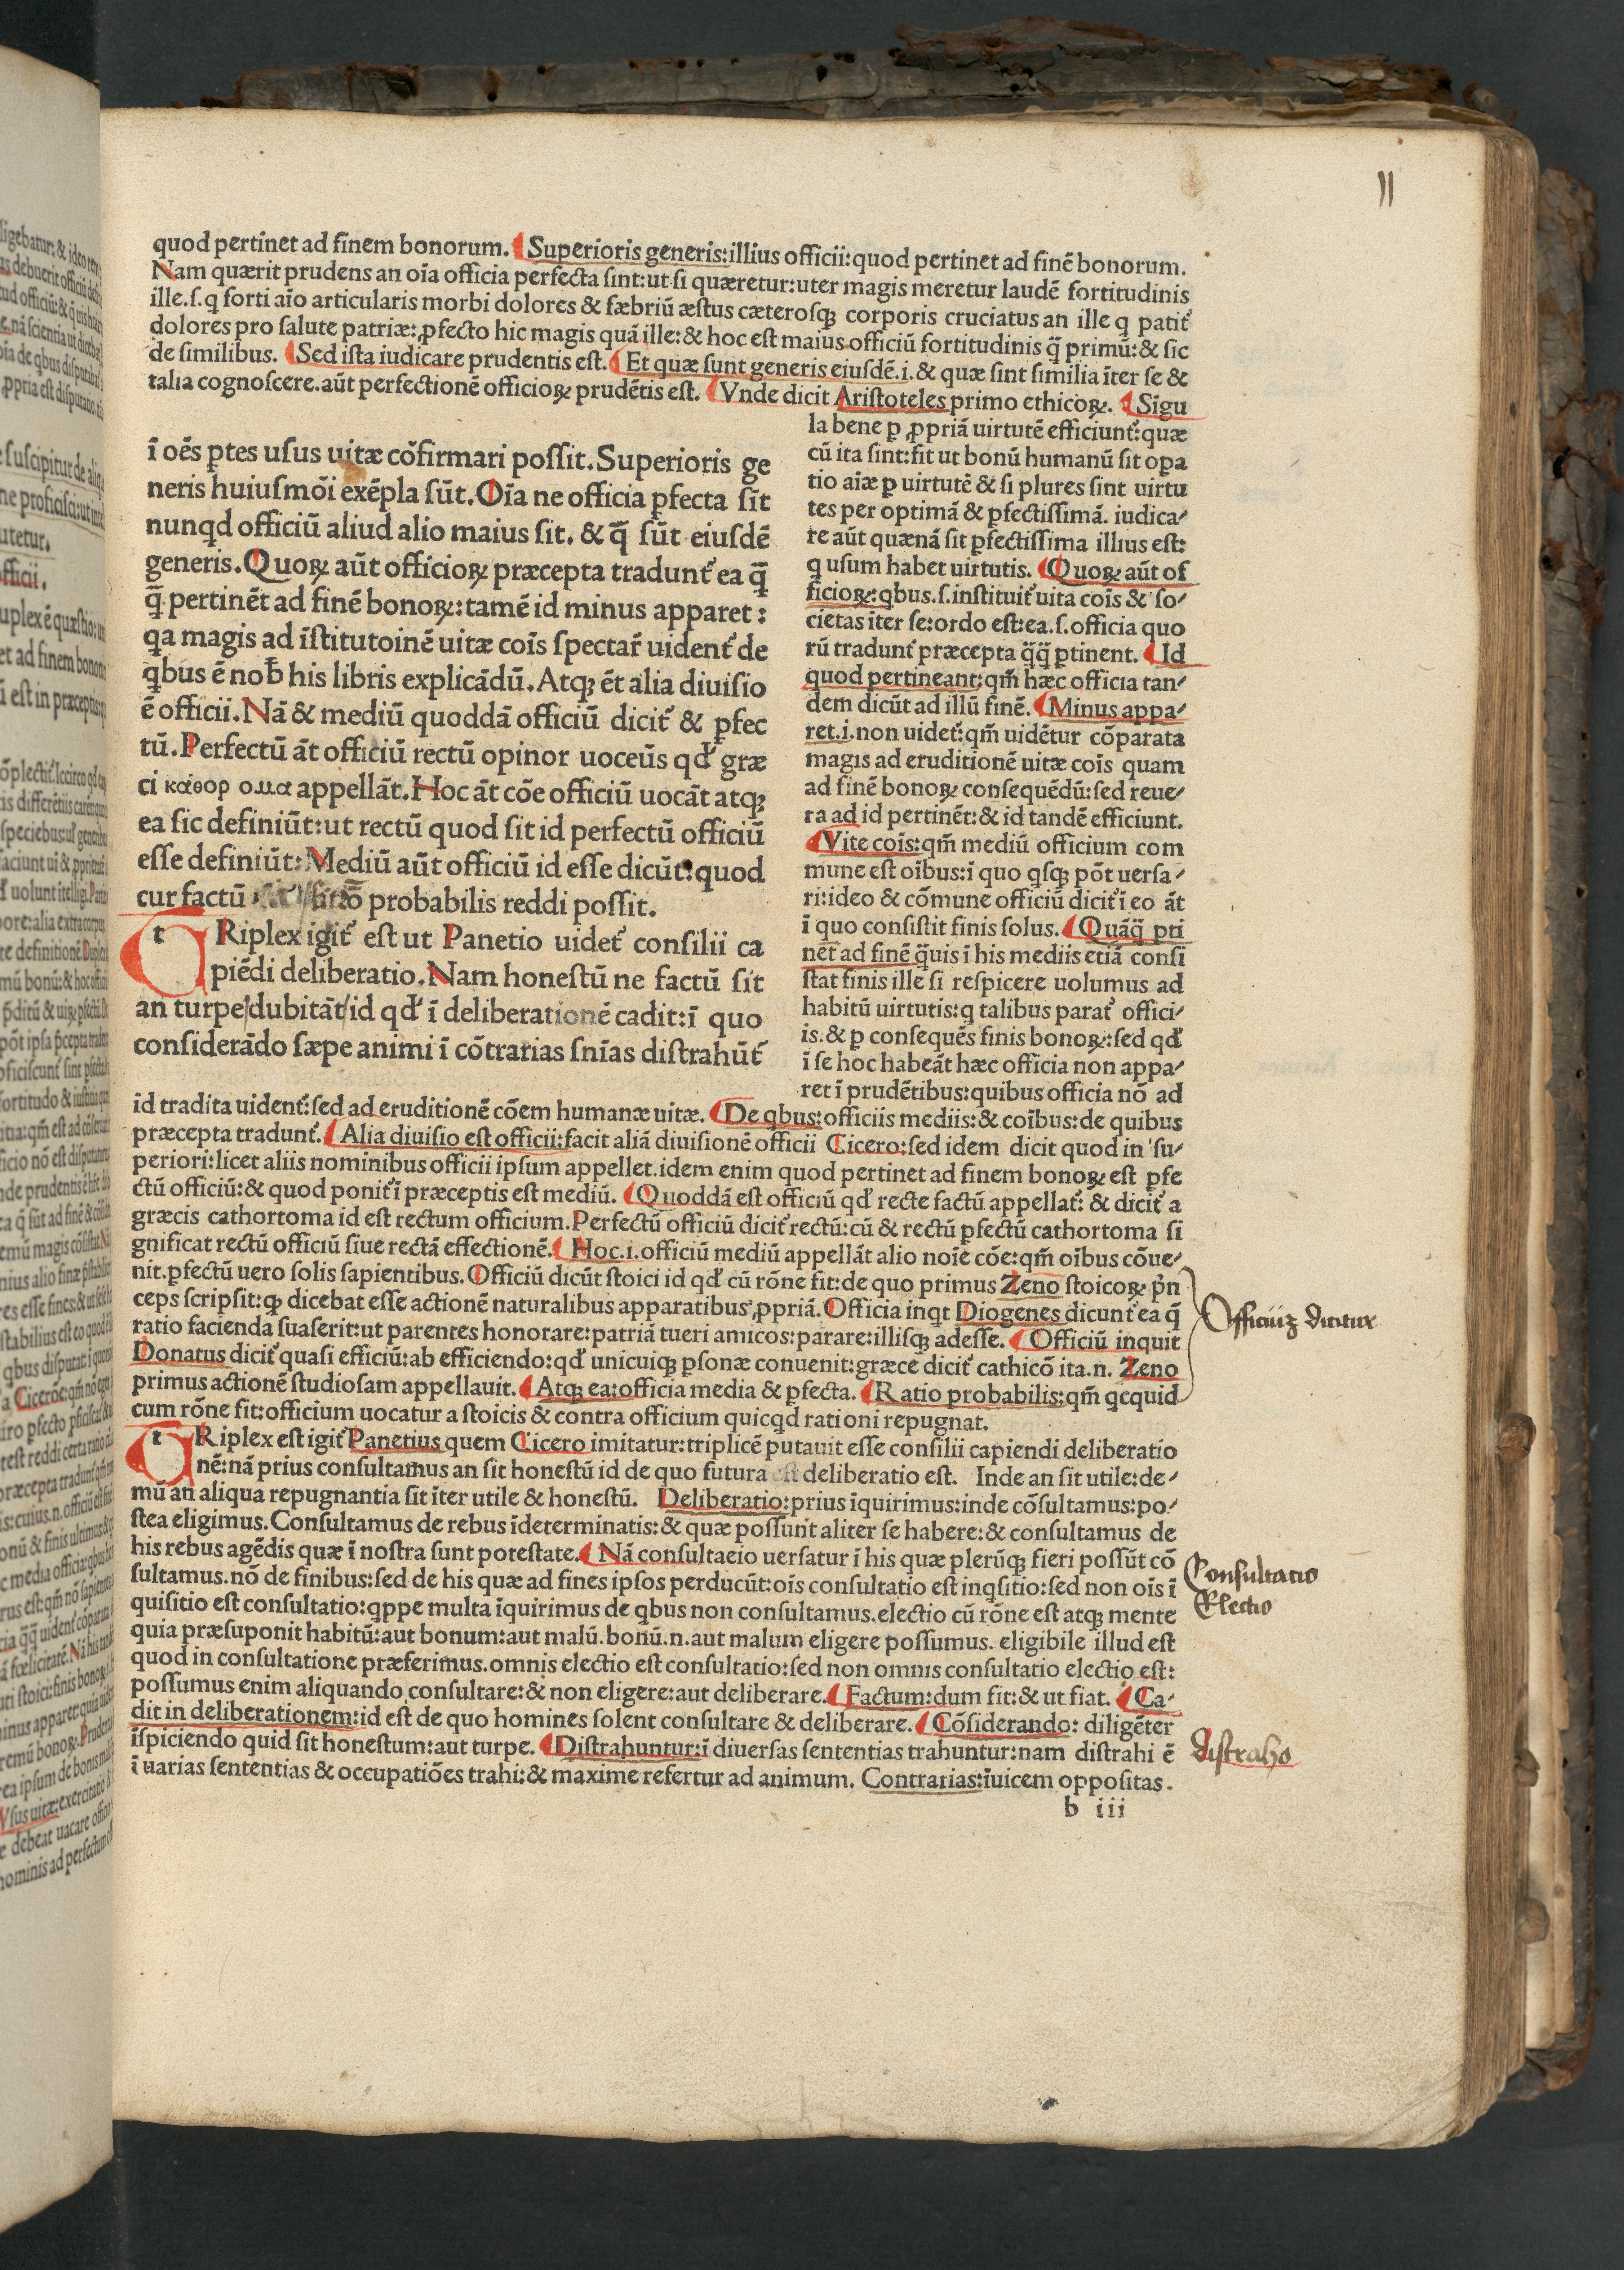 11
quod pertinet ad finem bonorum. Superioris generis: illius officii: quod pertinet ad finē bonorum.
Nam quærit prudens an oīa officia perfecta ſint: ut ſi quæretur: uter magis meretur laudē fortitudinis
ille. ſ. q forti aīo articularis morbi dolores & fæbriū æſtus cæteroſqꝫ corporis cruciatus an ille q patiť
dolores pro ſalute patriæ: ꝓfecto hic magis quā ille: & hoc eſt maius officiū fortitudinis q̄ primū: & ſic
de ſimilibus. Sed iſta iudicare prudentis eſt. Et quæ ſunt generis eiuſdē. i. & quæ ſint ſimilia īter ſe &
talia cognoſcere. aūt perfectionē officioꝝ prudētis eſt. Vnde dicit Ariſtoteles primo ethicoꝝ. Sīgu
la bene ꝑ ꝓpriā uirtutē efficiunť: quæ
cū ita ſint: fit ut bonū humanū ſit opa
tio aiæ ꝑ uirtutē & ſi plures ſint uirtu
tes per optimā & ꝑfectiſſimā. iudica/
re aūt quænā ſit ꝑfectiſſima illius eſt:
q uſum habet uirtutis. Quoꝝ aūt of
ficioꝝ: qbus. ſ. inſtituiť uita coīs & ſo/
cietas iter ſe: ordo eſt: ea. ſ. officia quo
rū tradunť præcepta q̄q̄ ꝑtinent. Id
quod pertineant: qm̄ hæc officia tan/
dem dicūt ad illū finē. Minus appa/
ret. i. non uideť: qm̄ uidētur cōparata
magis ad eruditionē uitæ coīs quam
ad finē bonoꝝ conſequēdū: ſed reue/
ra ad id pertinēt: & id tandē efficiunt.
Vite coīs: qm̄ mediū officium com
mune eſt oībus: ī quo qſqꝫ pōt uerſa/
ri: ideo & cōmune officiū diciť ī eo āt
ī quo conſiſtit finis ſolus. Quāq̄ pti
net ad finē q̄uis ī his mediis etiā conſi
ſtat finis ille ſi reſpicere uolumus ad
habitū uirtutis: q talibus parať offici/
is. & ꝑ conſequēs finis bonoꝝ: ſed qď
ī ſe hoc habeāt hæc officia non appa/
ret ī prudētibus: quibus officia nō ad
ī oēs ꝑtes uſus uitæ cōfirmari poſſit. Superioris ge
neris huiuſmōi exēpla ſūt. Oīa ne officia ꝑfecta ſīt
nunqd officiū aliud alio maius ſit. & q̄ ſūt eiuſdē
generis. Quoꝝ aūt officioꝝ præcepta tradunť ea q̄
q̄ pertinēt ad finē bonoꝝ: tamē id minus apparet:
qa magis ad īſtitutoinē uitæ coīs ſpectar̄ uidenť de
qbus ē noƀ his libris explicādū. Atqꝫ ēt alia diuiſio
ē officii. Nā & mediū quoddā officiū diciť & ꝑfec
tū. Perfectū āt officiū rectū opinor uoceūs qď græ
ci κάθορ ομα appellāt. Hoc āt cōe officiū uocāt atqꝫ
ea ſic definiūt: ut rectū quod ſit id perfectū officiū
eſſe definiūt: Mediū aūt officiū id eſſe dicūt: quod
cur factū probabilis reddi poſſit.
tRiplex igiť eſt ut Panetio uideť conſilii ca
piēdi deliberatio. Nam honeſtū ne factū ſit
an turpe dubitāt id qď ī deliberationē cadit: ī quo
conſiderādo ſæpe animi ī cōtrarias ſnīas diſtrahūť
id tradita uidenť: ſed ad eruditionē cōem humanæ uitæ. De qbus: officiis mediis: & coībus: de quibus
præcepta tradunť. Alia diuiſio eſt officii: facit aliā diuiſionē officii Cicero: ſed idem dicit quod in ſu/
periori: licet aliis nominibus officii ipſum appellet. idem enim quod pertinet ad finem bonoꝝ eſt ꝑfe
ctū officiū: & quod poniť ī præceptis eſt mediū. Quoddā eſt officiū qď recte factū appellať: & diciť a
græcis cathortoma id eſt rectum officium. Perfectū officiū diciť rectū: cū & rectū ꝑfectū cathortoma ſi
gnificat rectū officiū ſiue rectā effectionē. Hoc. i. officiū mediū appellāt alio noīe cōe: qm̄ oībus cōue/
nit. ꝑfectū uero ſolis ſapientibus. Officiū dicūt ſtoici id qď cū rōne fit: de quo primus Zeno ſtoicoꝝ p̄n
ceps ſcripſit: qꝫ dicebat eſſe actionē naturalibus apparatibus ꝓpriā. Officia inqt Diogenes dicunť ea q̄
ratio facienda ſuaſerit: ut parentes honorare: patriā tueri amicos: parare: illiſqꝫ adeſſe. Officiū inquit
Donatus diciť quaſi efficiū: ab efficiendo: qď unicuiqꝫ ꝑſonæ conuenit: græce diciť cathicō ita. n. Zeno
primus actionē ſtudioſam appellauit. Atqꝫ ea: officia media & ꝑfecta. Ratio probabilis: qm̄ qcquid
cum rōne fit: officium uocatur a ſtoicis & contra officium quicqd rationi repugnat.
tRiplex eſt igiť Panetius quem Cicero imitatur: triplicē putauit eſſe conſilii capiendi deliberatio
nē: nā prius conſultamus an ſit honeſtū id de quo futura eſt deliberatio eſt. Inde an ſit utile: de/
mū an aliqua repugnantia ſit īter utile & honeſtū. Deliberatio: prius īquirimus: inde cōſultamus: po/
ſtea eligimus. Conſultamus de rebus īdeterminatis: & quæ poſſunt aliter ſe habere: & conſultamus de
his rebus agēdis quæ ī noſtra ſunt poteſtate. Nā conſultaeio uerſatur ī his quæ plerūqꝫ fieri poſſūt cō
ſultamus. nō de finibus: ſed de his quæ ad fines ipſos perducūt: oīs conſultatio eſt inqſitio: ſed non oīs ī
quiſitio eſt conſultatio: qppe multa īquirimus de qbus non conſultamus. electio cū rōne eſt atqꝫ mente
quia præſuponit habitū: aut bonum: aut malū. bonū. n. aut malum eligere poſſumus. eligibile illud eſt
quod in conſultatione præferimus. omnis electio eſt conſultatio: ſed non omnis conſultatio electio eſt:
poſſumus enim aliquando conſultare: & non eligere: aut deliberare. Factum: dum fit: & ut fiat. Ca/
dit in deliberationem: id eſt de quo homines ſolent conſultare & deliberare. Cōſiderando: diligēter
īſpiciendo quid ſit honeſtum: aut turpe. Diſtrahuntur: ī diuerſas ſententias trahuntur: nam diſtrahi ē
ī uarias ſententias & occupatiōes trahi: & maxime refertur ad animum. Contrarias: īuicem oppoſitas.
b iii
Officiūꝫ dicitur
Conſultatio
Electio
diſtraho